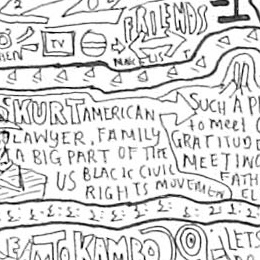 FRIENDS
TV
SKURT AMERICAN
LAWYER, FAMILY
A BIG PART OF THE
US BLACK CIVIL
RIGHTS MOVEMEN
SUCH A P
to meet
GRATITUD
MEETIN
FATH
EL
TO KAMBO
LETS